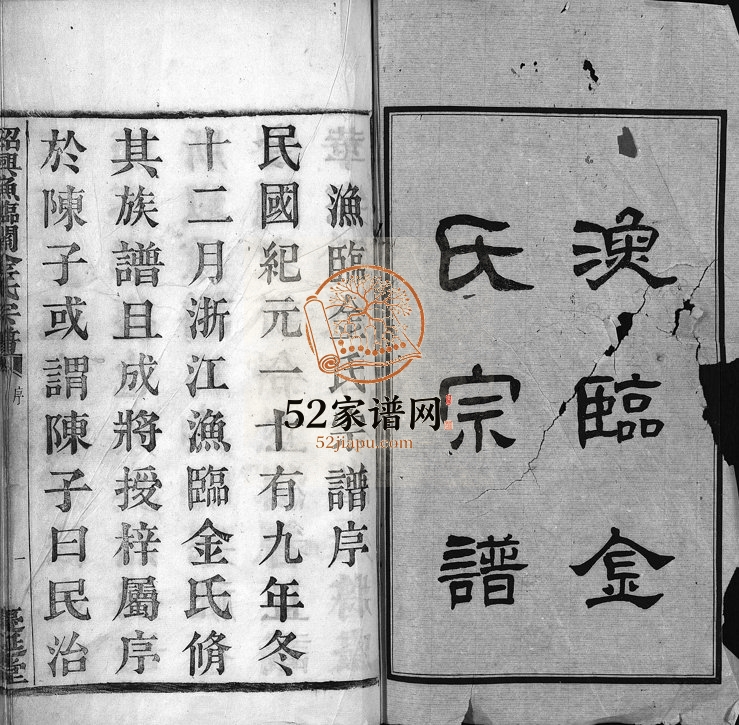 漁臨金
氏宗譜
漁臨金氏譜序
民國紀元一十有九年冬
十二月浙江漁臨金氏脩
其族譜且成將授梓屬序
於陳子或謂陳子曰民治
紹興漁臨關金氏宗譜
序
一
堂
52家谱网
52jiapu.com